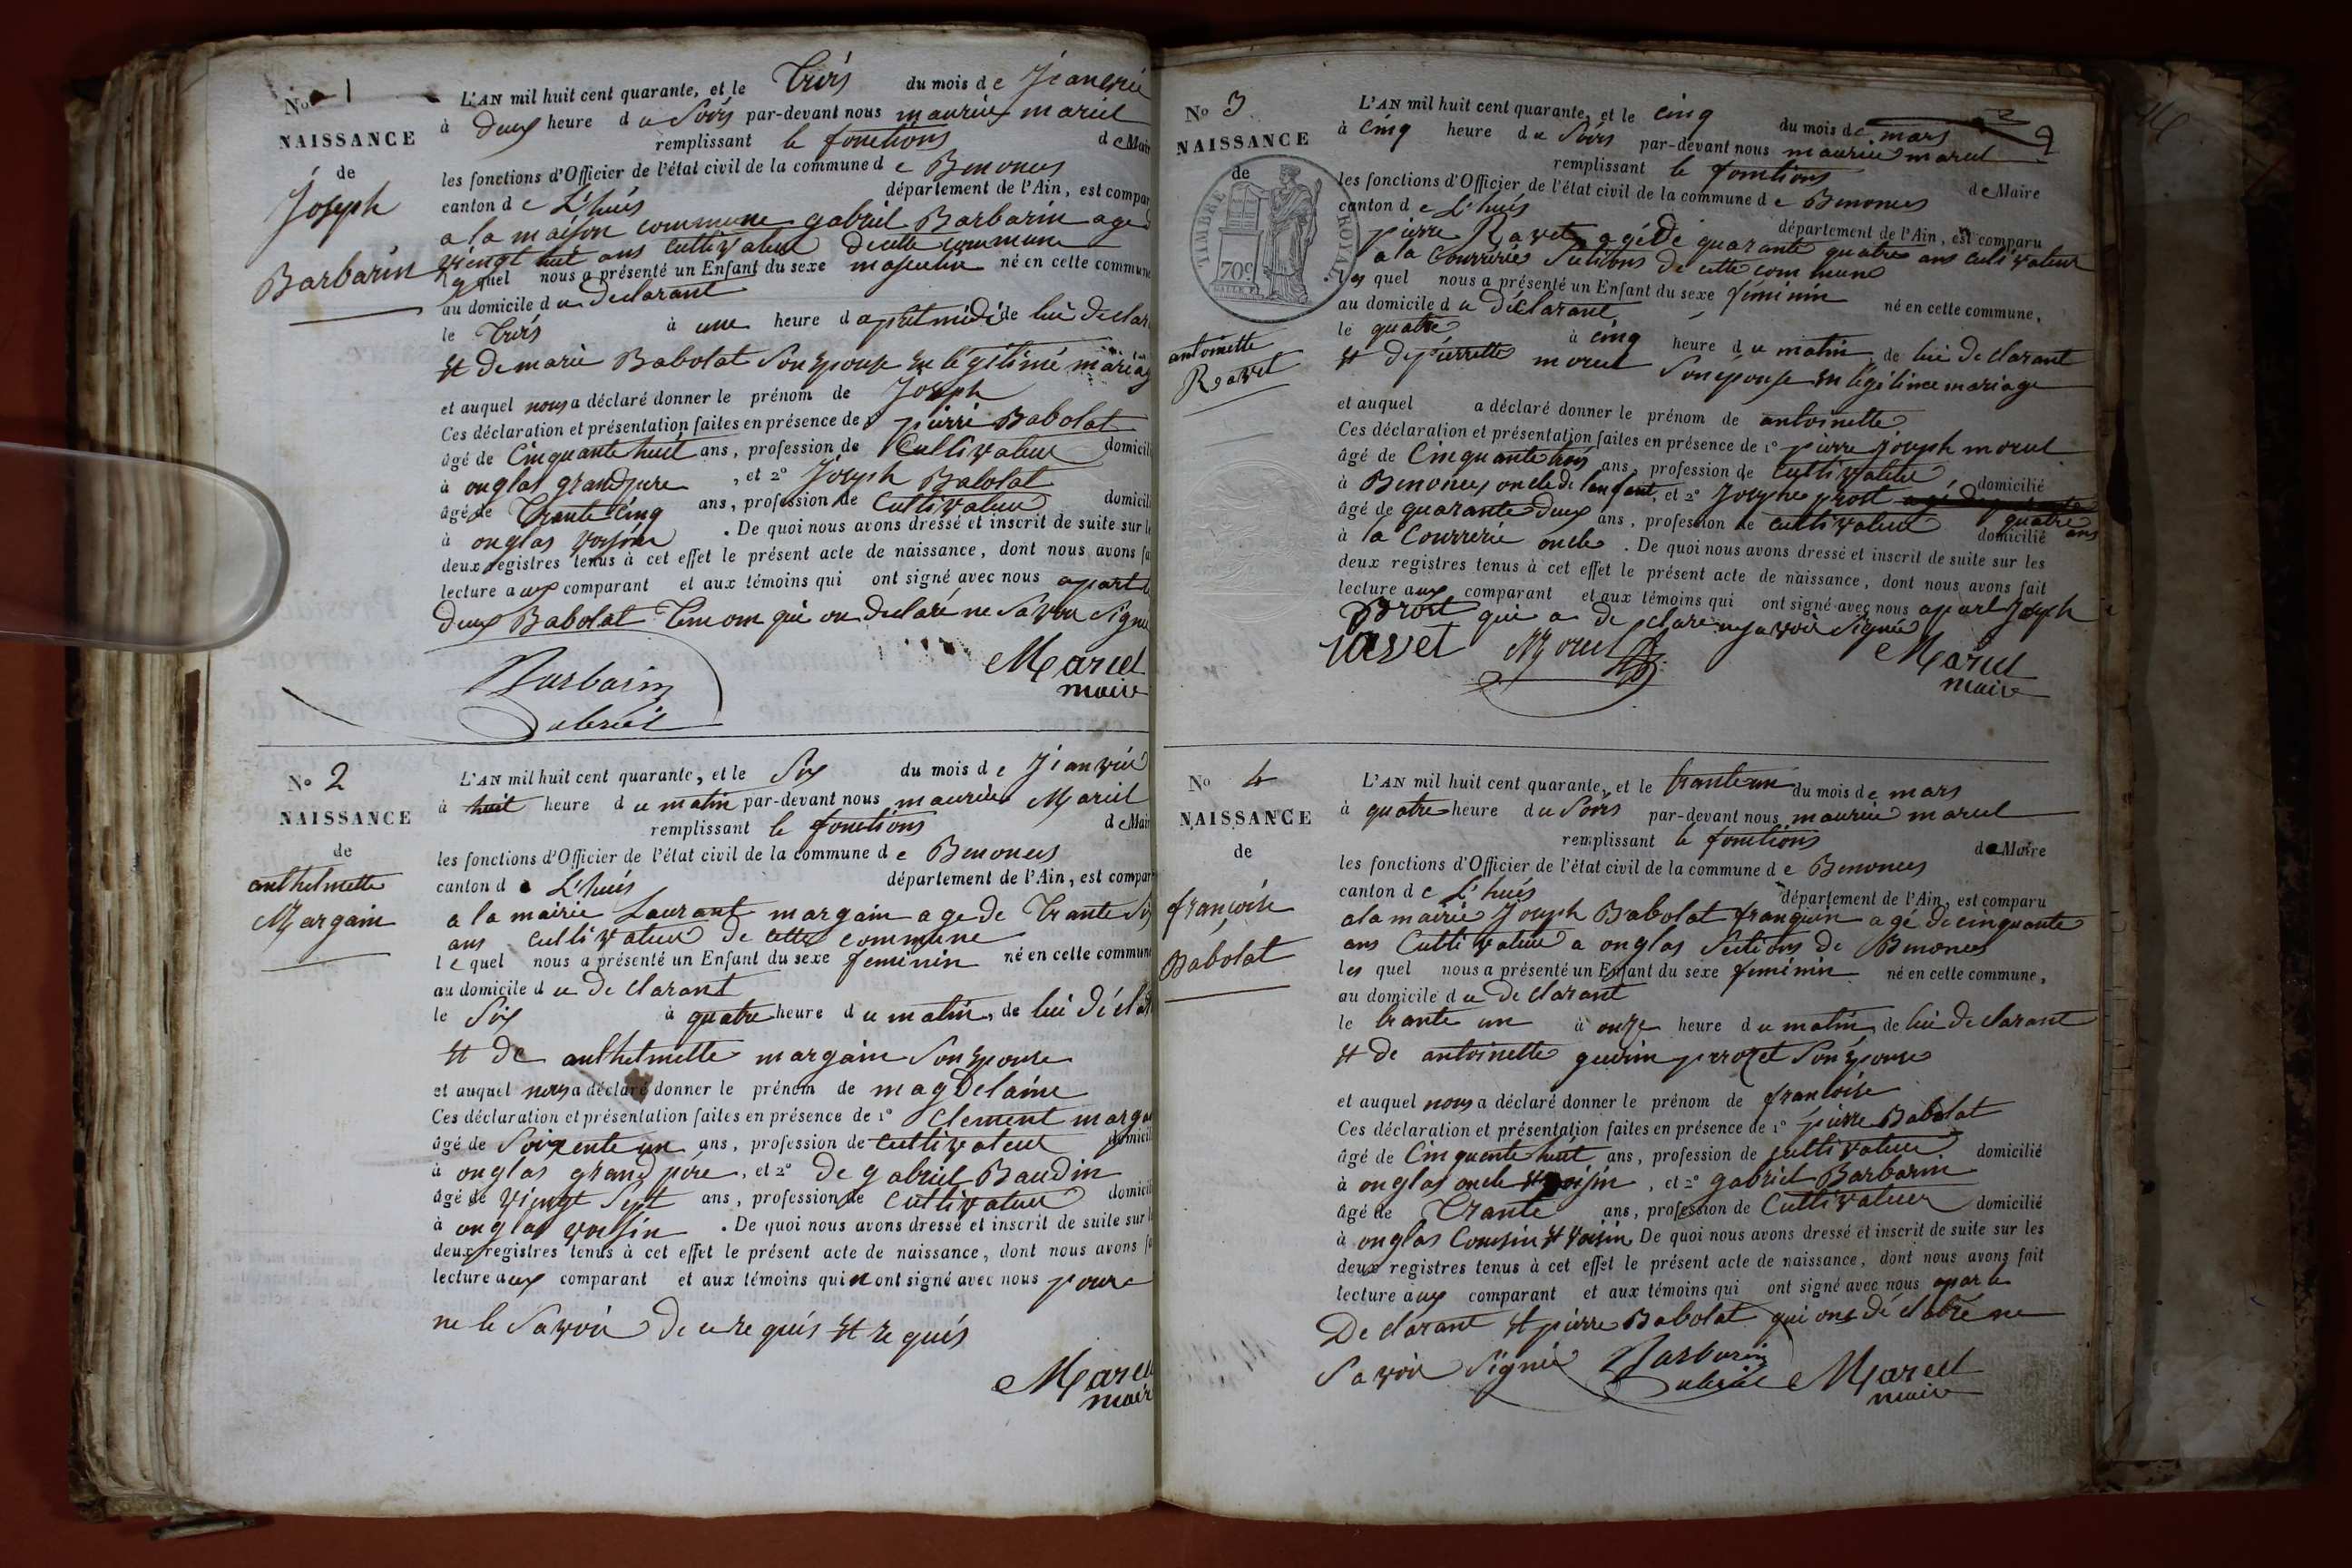 No 1
NAISSANCE
de
Joseph
Barbarin
L'AN mil huit cent quarante, et le Trois du mois de
à deux heure du Soirs par-devant nous maurice marcel
remplissant le fonctions de Mair
les fonctions d'Officier de l'état civil de la commune de Benonces
canton de L'huis département de l'Ain, est compar
a la maison commune gabriel Barbarin age
viengt huit ans cultivateur decette commune
lequel nous a présenté un Enfant du sexe masculin né en cette commune
au domicile du declarant
le Trois à une heure daprest midi de lui declar
Et de marie Babolat Son Epouse En légitime mariag
et auquel nous a déclaré donner le prénom de Joseph
Ces déclaration et présentation faites en présence de pierre Babolat
âgé de Cinquante huit ans, profession de Cultivateur domicil
à onglas grandpere, et 2° Joseph Babolat
âgé de Trante cinq ans, profession de Cultivateur domicil
à onglas voisin. De quoi nous avons dressé et inscrit de suite sur l
deux registres tenus à cet effet le présent acte de naissance, dont nous avons fa
lecture aux comparant et aux témoins qui ont signé avec nous apart le
deux Babolat Temom qui on declaré ne Savoir Signe
Marcel
maire
Barbarin
Gabriel
No 2
NAISSANCE
de
anthelmette
Margain
L'AN mil huit cent quarante, et le Six du mois de
à huit heure du matin par-devant nous maurice Marcel
remplissant le fonctions de Mair
les fonctions d'Officier de l'état civil de la commune de Benonces
canton de L'huis département de l'Ain, est compar
a la mairie Laurant margain age de Trante Six
ans cultivateur de cette commune
lequel nous a présenté un Enfant du sexe feminin né en cette commune
au domicile du declarant
le Six à quatre heure du matin, de lui déclar
Et de anthelmette margain Son Epouse
et auquel nous a déclaré donner le prénom de magdelaine
Ces déclaration et présentation faites en présence de 1° Clement marga
âgé de Soixente un ans, profession de cultivateur domicil
à onglas grand pere, et 2° de gabriel Baudin
âgé de viengt Sept ans, profession de Cultivateur domicil
à onglas voisin. De quoi nous avons dressé et inscrit de suite sur l
deux registres tenus à cet effet le présent acte de naissance, dont nous avons fa
lecture aux comparant et aux témoins qui n ont signé avec nous pour
ne le Savoir de ce requis Et requis
Marcel
mair
No 3
NAISSANCE
de
TIMBRE ROYAL
70c
antoinette
Ravet
L'AN mil huit cent quarante, et le cinq du mois de mars
à cinq heure du Soirs par-devant nous maurice marcel
remplissant le fonctions de Maire
les fonctions d'Officier de l'état civil de la commune de Benonces
canton de L'huis département de l'Ain, est comparu
pierre Ravet agé de quarante quatre ans cultivateur
a la Courrerie Sections de cette commune
les quel nous a présenté un Enfant du sexe féminin né en cette commune,
au domicile du déclarant
le quatre à cinq heure du matin, de lui declarant
Et de pierrette morel Son épouse en légitime mariage
et auquel a déclaré donner le prénom de antoinette
Ces déclaration et présentation faites en présence de 1° pierre joseph morel
âgé de Cinquante trois ans, profession de Cultivateur domicilié
à Benonces oncle de lenfant, et 2° Josephe prost
âgé de quarante deux ans, profession de cultivateur domicilié
à la Courrerie oncle. De quoi nous avons dressé et inscrit de suite sur les
deux registres tenus à cet effet le présent acte de naissance, dont nous avons fait
lecture aux comparant et aux témoins qui ont signé avec nous apart Joseph
Prost qui a declare ne savoir Signé
ravet Morel Marcel
maire
No 4
NAISSANCE
de
françoise
Babolat
L'AN mil huit cent quarante, et le trante un du mois de mars
à quatre heure du Soirs par-devant nous maurice marcel
remplissant le fonctions de Maire
les fonctions d'Officier de l'état civil de la commune de Benonces
canton de L'huis département de l'Ain, est comparu
a la mairie Joseph Babolat agé de cinquante
ans Cultivateur a onglas Sections de Benonces
les quel nous a présenté un Enfant du sexe feminin né en cette commune,
au domicile du declarant
le trante un à onze heure du matin, de lui declarant
Et de antoinette Son Epouse
et auquel nous a déclaré donner le prénom de francoise
Ces déclaration et présentation faites en présence de 1° pierre Babolat
âgé de Cinquente huit ans, profession de cultivateur domicilié
à onglas oncle Et voisin, et 2° gabriel Barbarin
âgé de Trante ans, profession de Cultivateur domicilié
à onglas Cousin Et voisin De quoi nous avons dressé et inscrit de suite sur les
deux registres tenus à cet effet le présent acte de naissance, dont nous avons fait
lecture aux comparant et aux témoins qui ont signé avec nous apar le
Declarant Et pierre Babolat qui ont déclaré ne
Savoir Signé Barbarin Marcel
Gabriel maire